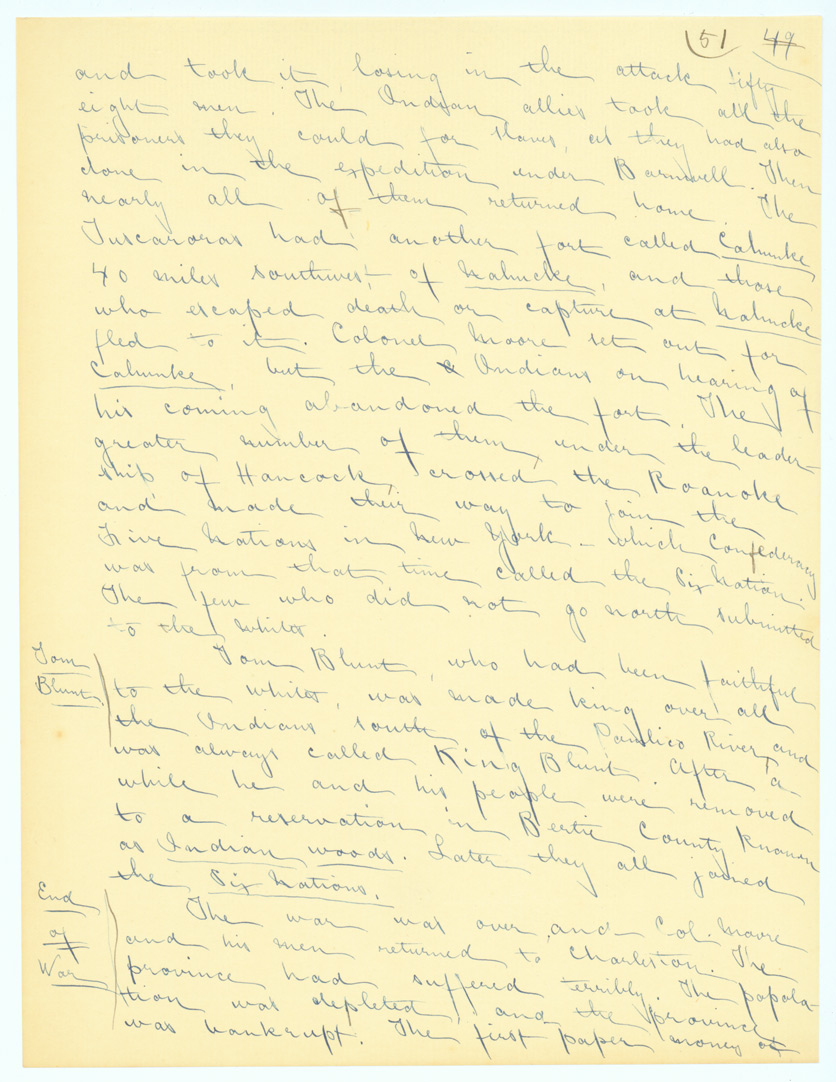 51 49
and took it, losing in the attack fifty
eight men. The Indian allies took all the
prisoners they could for slaves, as they had also
done in the expedition under Barnwell. Then
nearly all of them returned home. The
Tuscaroras had another fort called Cahunke
40 miles southwest of Nahucke, and those
who escaped death or capture at Nahucke
fled to it. Colonel Moore set out for
Cahunke, but the Indians on hearing of
his coming abandoned the fort. The
greater number of them, under the leader-
ship of Hancock, crossed the Roanoke
and made their way to join the
Five Nations in New York - which Confederacy
was from that time called the Six Nation.
The few who did not go north submitted
to the whites.
Tom
Blunt.
Tom Blunt, who had been faithful
to the whites, was made king over all
the Indians south of the Pamlico River, and
was always called King Blunt. After a
while he and his people were removed
to a reservation in Bertie County known
as Indian woods. Later they all joined
the Six Nations.
End
of
War
The war was over, and Col. Moore
and his men returned to Charleston. The
province had suffered terribly. The popula-
tion was depleted, and the province
was bankrupt. The first paper money of